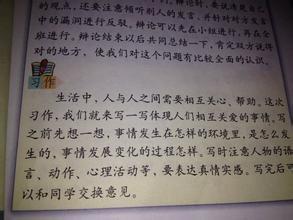 的观点，还要注意倾听别人的发言，并针对对方发言
中的漏洞进行反驳。辩论可以先在小组进行，再在全
班进行。辩论结束以后共同总结一下，肯定双方说得
对的地方，使我们对这个问题有比较全面的认识。
习作
生活中，人与人之间需要相互关心、帮助。这次
习作，我们就来写一写体现人们相互关爱的事情。写
之前先想一想，事情发生在怎样的环境里，是怎么发
生的，事情发展变化的过程怎样。写时注意人物的语
言、动作、心理活动等，要表达真情实感。写完后可
以和同学交换意见。